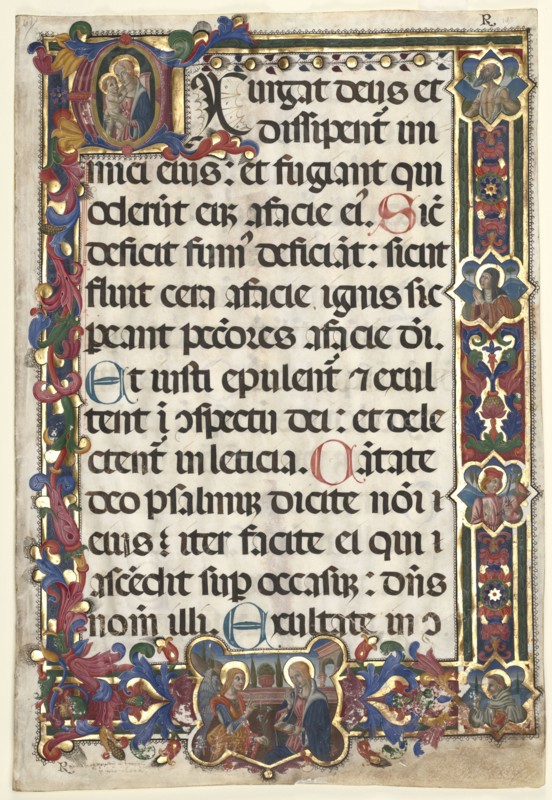 R
EXurgat deus et
dissipent̄ ini
mici eius: et fugiant qui
oderūt eūʒ afacie ei'. Sic̄
deficit fum' deficiāt: sicut
fluit cera afacie ignis sic
pereant pec̄ores afacie dī.
Et iusti epulent̄ ⁊ exul
tent ī ɔspectu dei: et dele
ctent̄ in leticia. Cātate
deo psalmuʒ dicite nōi i
eius: iter facite ei qui i
ascēdit sup̄ occasuʒ: dn̄s
nom̄ illi. Exultate in ɔ
R